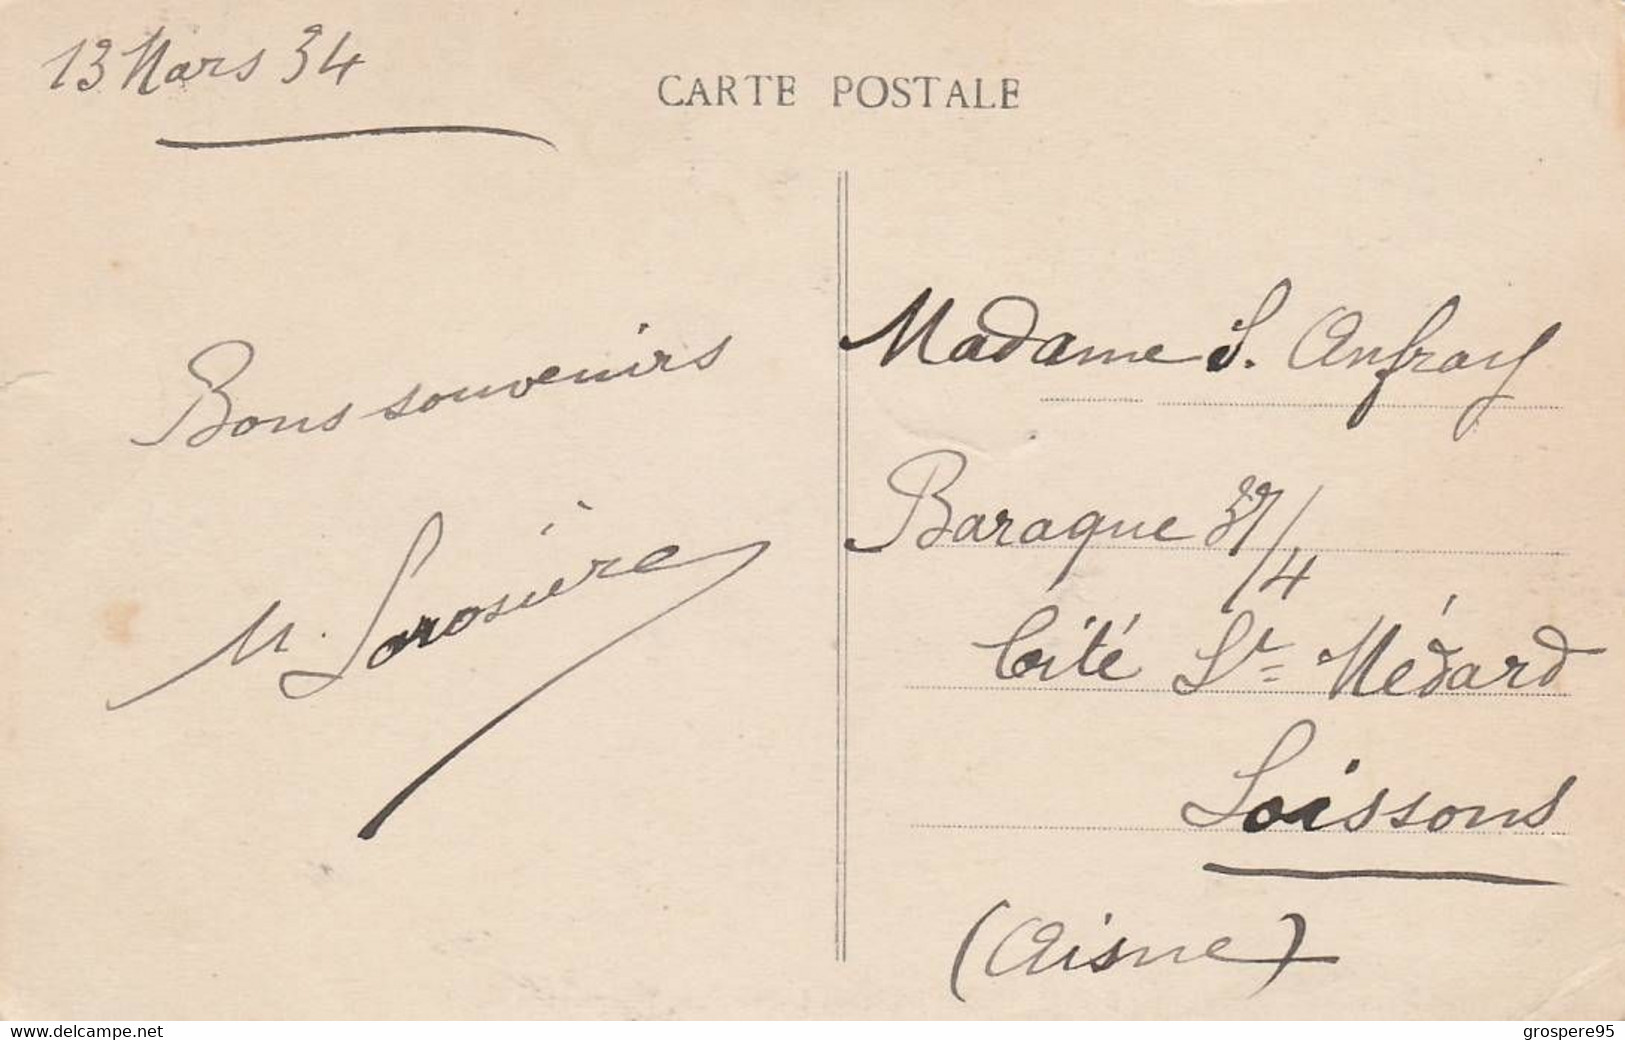 13 Mars 34
CARTE POSTALE
Bons souvenirs
Madame S. Anfray
Baraque 37/4
Cité St Médard
Soissons
(Aisne)
www.delcampe.net
grospere95